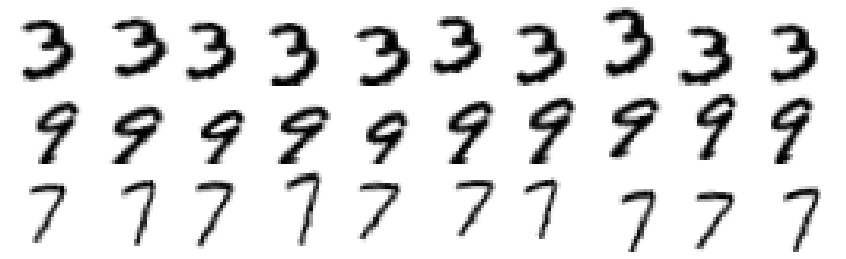 3 3 3 3 3 3 3 3 3 3
9 9 9 9 9 9 9 9 9 9
7 7 7 7 7 7 7 7 7 7